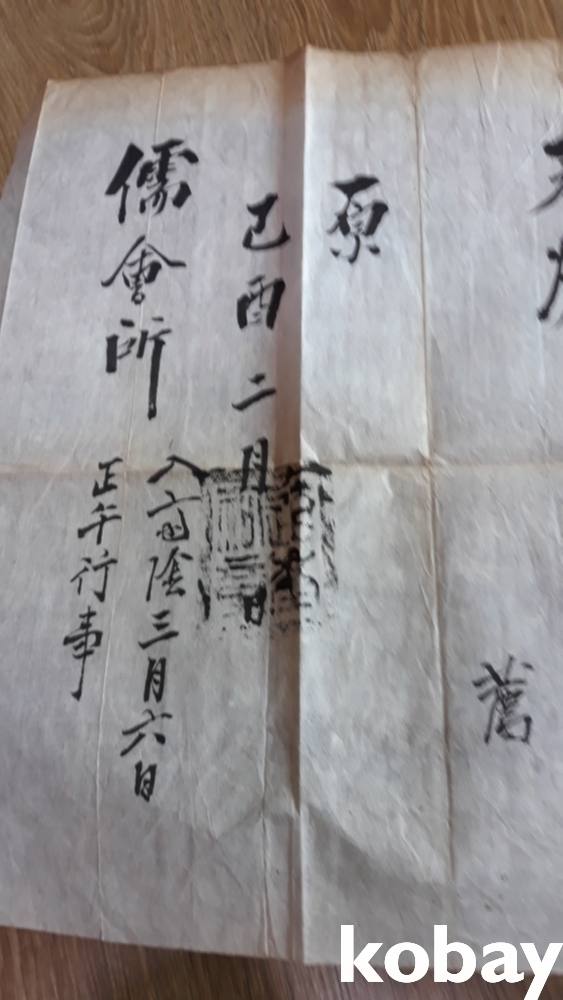 原
己酉二月 日
儒會所
入齋陰三月六日
正午行事
kobay